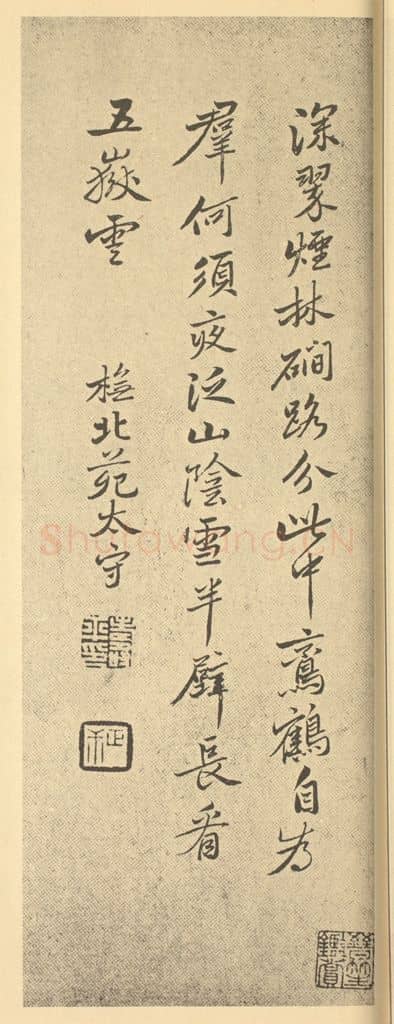 深翠煙林磵路分此中鸞鶴自為
羣何須夜泛山陰雪半壁長看
五嶽雲
北苑太守